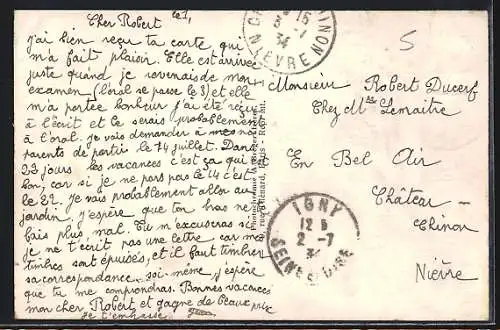 Cher Robert
le 1,
j'ai bien reçu ta carte qui
m'a fait plaisir. Elle est arrivée
juste quand je revenais de mon
examen (l'oral se passe le 3) et elle
m'a portée bonheur j'ai été reçue
à l'écrit et le serais probablement
à l'oral. je vais demander à mes
parents de partir le 14 juillet. Dans
23 jours les vacances c'est ça qui est
bon, car si je ne pars pas le 14 c'est
le 22. Je vais probablement aller au
jardin j'espère que ton bras ne
fais plus mal. Tu m'excuseras si
je ne t'écrit pas une lettre car mes
timbres sont épuisés, et il faut timbrer
sa correspondance soi-même j'espère
que tu me comprendras. Bonnes vacances
mon cher Robert et gagne de beaux prix
Je t'embrasse
5
Monsieur Robert Ducerf
Chez Mme Lemaitre
En Bel Air
Château-
Chinon
Nièvre
34
NIEVRE
IGNY
12
2-7
SEINE